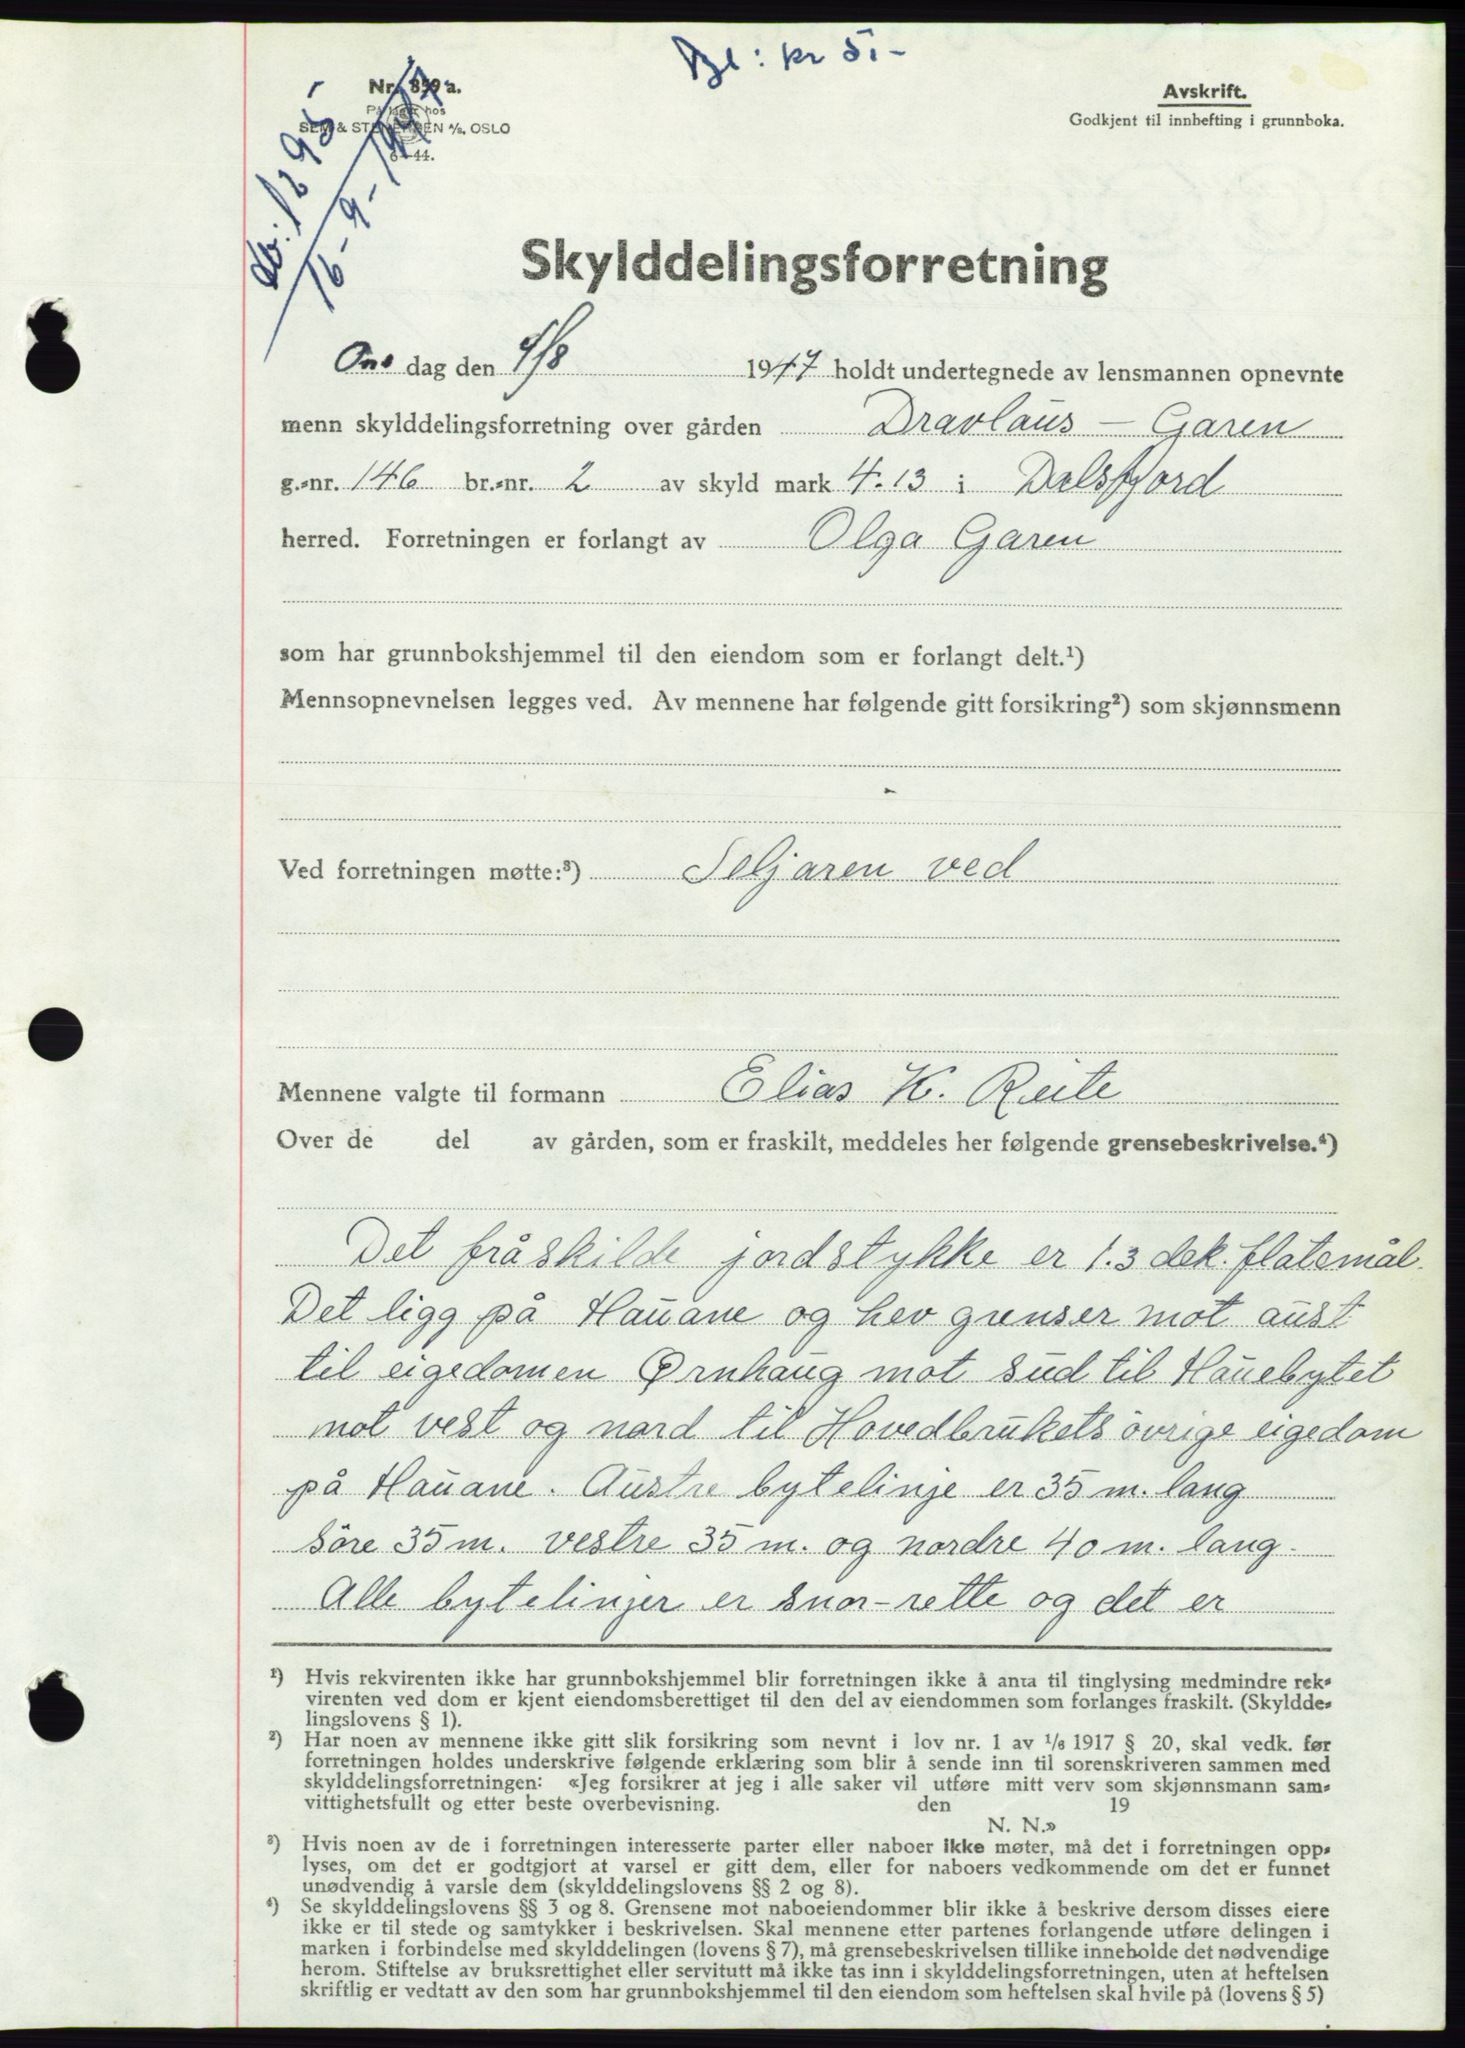 Bl: kr 5,-
Nr. 859 a.
På lager hos
SEM & STENERSEN A/S, OSLO
6-44.
db. 1295
16-9-1947
Avskrift.
Godkjent til innhefting i grunnboka.
Skylddelingsforretning
Ons dag den 4/8 1947 holdt undertegnede av lensmannen opnevnte
menn skylddelingsforretning over gården Dravlaus - Garen
g.-nr. 146 br.-nr. 2 av skyld mark 4.13 i Dalsfjord
herred. Forretningen er forlangt av Olga Garen
som har grunnbokshjemmel til den eiendom som er forlangt delt.¹)
Mennsopnevnelsen legges ved. Av mennene har følgende gitt forsikring²) som skjønnsmenn
Ved forretningen møtte:³) Seljaren ved
Mennene valgte til formann Elias K. Reite
Over de del av gården, som er fraskilt, meddeles her følgende grensebeskrivelse.⁴)
Det fråskilde jordstykke er 1.3 dek. flatemål.
Det ligg på Hauane og hev grenser mot aust
til eigedomen Ørnhaug mot sud til Hauebytet
mot vest og nord til Hovedbrukets övrige eigedom
på Hauane. Austre bytelinje er 35 m. lang
söre 35 m. vestre 35 m. og nordre 40 m. lang.
Alle bytelinjer er snor-rette og det er
¹) Hvis rekvirenten ikke har grunnbokshjemmel blir forretningen ikke å anta til tinglysing medmindre rek-
virenten ved dom er kjent eiendomsberettiget til den del av eiendommen som forlanges fraskilt. (Skyldde-
lingslovens § 1).
²) Har noen av mennene ikke gitt slik forsikring som nevnt i lov nr. 1 av 1/6 1917 § 20, skal vedk. før
forretningen holdes underskrive følgende erklæring som blir å sende inn til sorenskriveren sammen med
skylddelingsforretningen: «Jeg forsikrer at jeg i alle saker vil utføre mitt verv som skjønnsmann sam-
vittighetsfullt og etter beste overbevisning. den 19
N. N.»
³) Hvis noen av de i forretningen interesserte parter eller naboer ikke møter, må det i forretningen opp-
lyses, om det er godtgjort at varsel er gitt dem, eller for naboers vedkommende om det er funnet
unødvendig å varsle dem (skylddelingslovens §§ 2 og 8).
⁴) Se skylddelingslovens §§ 3 og 8. Grensene mot naboeiendommer blir ikke å beskrive dersom disses eiere
ikke er til stede og samtykker i beskrivelsen. Skal mennene etter partenes forlangende utføre delingen i
marken i forbindelse med skylddelingen (lovens § 7), må grensebeskrivelsen tillike inneholde det nødvendige
herom. Stiftelse av bruksrettighet eller servitutt må ikke tas inn i skylddelingsforretningen, uten at heftelsen
skriftlig er vedtatt av den som har grunnbokshjemmel til den eiendom som heftelsen skal hvile på (lovens § 5)